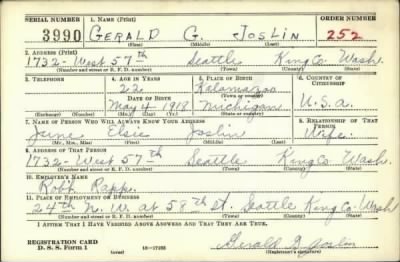 SERIAL NUMBER 1. NAME (Print) ORDER NUMBER
3990 GERALD G. JOSLIN 252
(First) (Middle) (Last)
2. ADDRESS (Print)
1732-West 57th Seattle King Co. Wash.
(Number and street or R. F. D. number) (Town) (County) (State)
3. TELEPHONE 4. AGE IN YEARS 5. PLACE OF BIRTH 6. COUNTRY OF CITIZENSHIP
22 Kalamazoo
DATE OF BIRTH (Town or county)
May 4 1918 Michigan U.S.A.
(Exchange) (No.) (Mo.) (Day) (Yr.) (State or country)
7. NAME OF PERSON WHO WILL ALWAYS KNOW YOUR ADDRESS 8. RELATIONSHIP OF THAT PERSON
June Elsie Joslin Wife.
(Mr., Mrs., Miss) (First) (Middle) (Last)
9. ADDRESS OF THAT PERSON
1732-West 57th Seattle King Co. Wash.
(Number and street or R. F. D. number) (Town) (County) (State)
10. EMPLOYER'S NAME
Robt. Rappe.
11. PLACE OF EMPLOYMENT OR BUSINESS
24th N. W. at 58th St. Seattle King Co. Wash
(Number and street or R. F. D. number) (Town) (County) (State)
I AFFIRM THAT I HAVE VERIFIED ABOVE ANSWERS AND THAT THEY ARE TRUE.
REGISTRATION CARD
D. S. S. Form 1 (over) 16—17105 Gerald G. Joslin
(Registrant's signature)